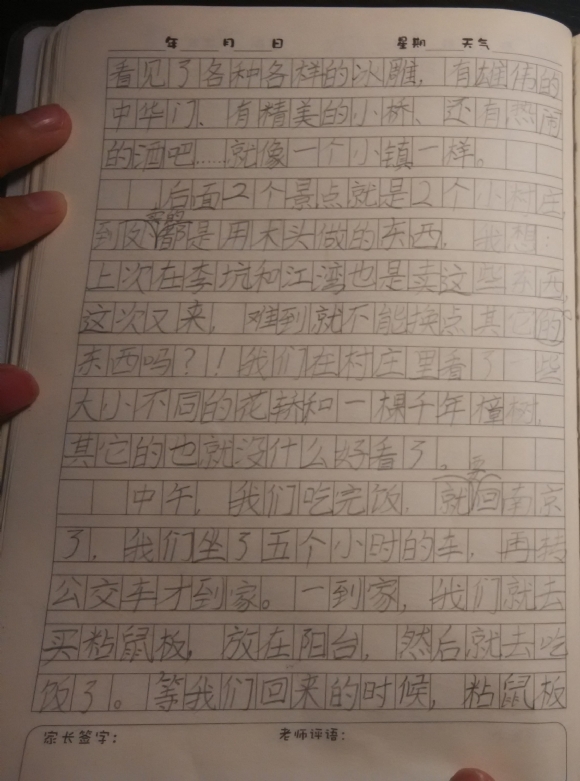 年 月 日 星期 天气
看见了各种各样的冰雕，有雄伟的
中华门、有精美的小桥、还有热闹
的酒吧……就像一个小镇一样。
后面2个景点就是2个小村庄
到处卖的都是用木头做的东西，我想：
上次在李坑和江湾也是卖这些东西，
这次又来，难到就不能换点其它的
东西吗？！我们在村庄里看了一些
大小不同的花轿和一棵千年樟树，
其它的也就没什么好看了。
中午，我们吃完饭，就要回南京
了，我们坐了五个小时的车，再转
公交车才到家。一到家，我们就去
买粘鼠板，放在阳台，然后就去吃
饭了。等我们回来的时候，粘鼠板
家长签字： 老师评语：